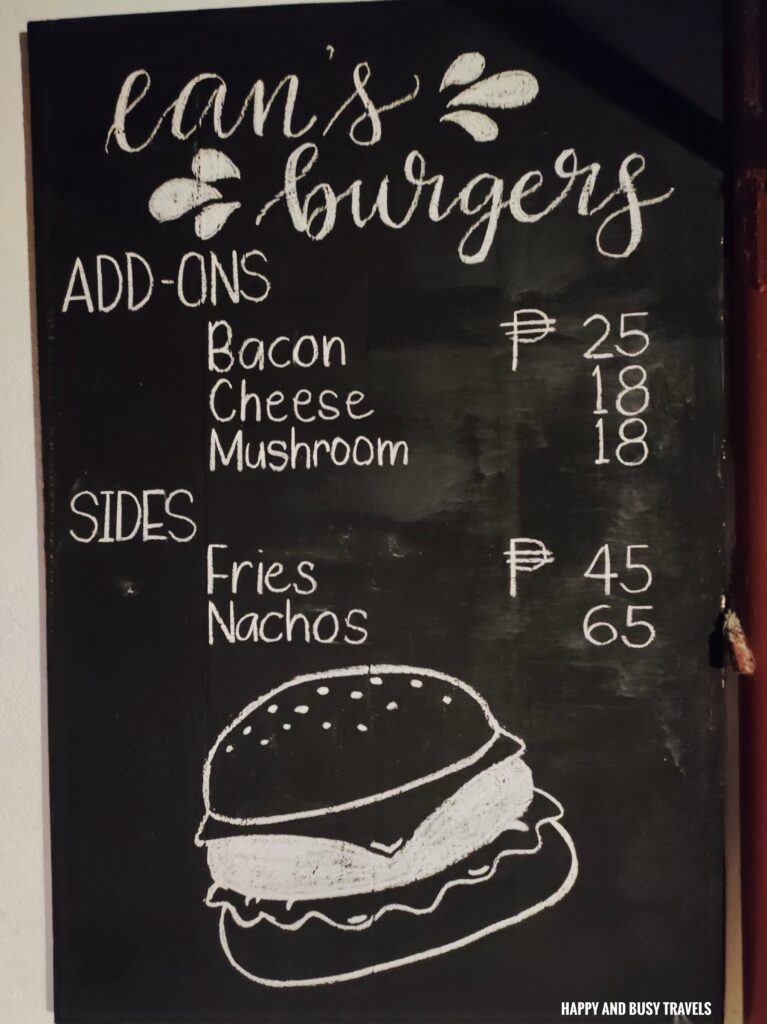 ean's
burgers
ADD-ONS
Bacon ₱ 25
Cheese 18
Mushroom 18
SIDES
Fries ₱ 45
Nachos 65
HAPPY AND BUSY TRAVELS